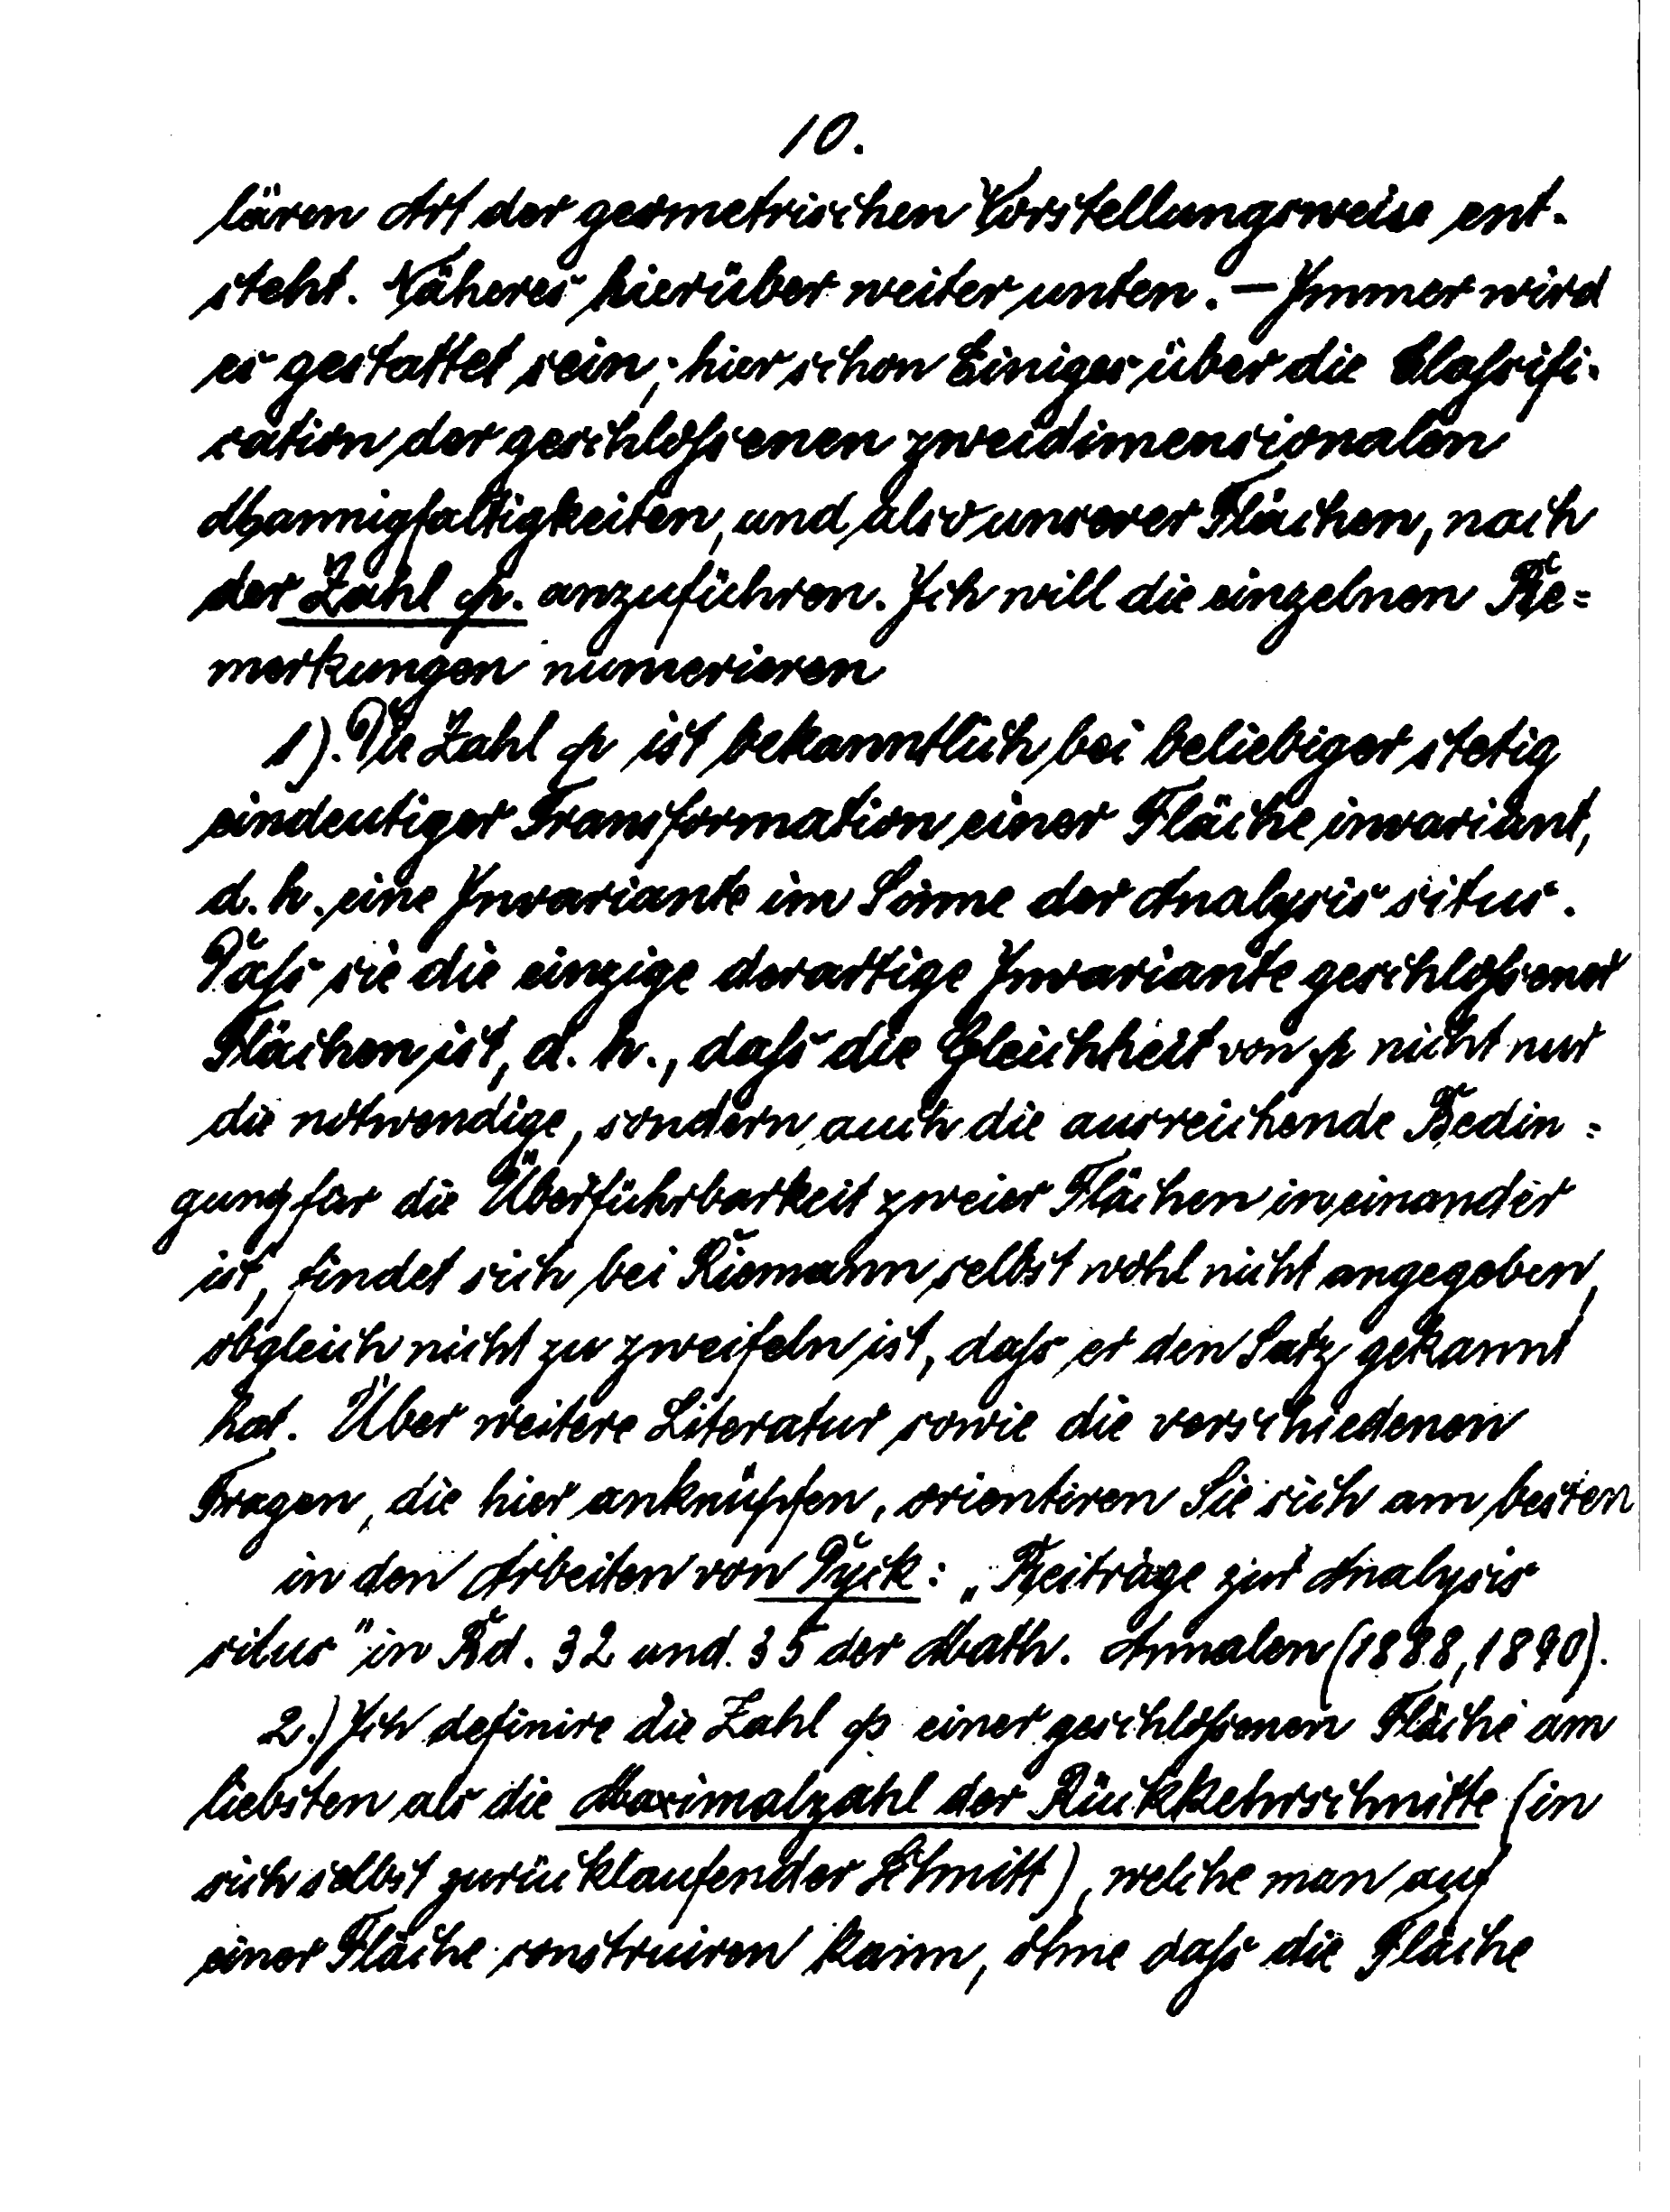 10.
lären Art der geometrischen Vorstellungsweise ent-
steht. Näheres hierüber weiter unten. — Immer wird
es gestattet sein, hier schon Einiges über die Classifi-
cation der geschlossenen zweidimensionalen
Mannigfaltigkeiten, und also unserer Flächen, nach
der Zahl p. anzuführen. Ich will die einzelnen Be=
merkungen numerieren
1). Die Zahl p ist bekanntlich bei beliebiger stetig
eindeutiger Transformation einer Fläche invariant,
d. h. eine Invariante im Sinne der Analysis situs.
Dass sie die einzige derartige Invariante geschlossener
Flächen ist, d. h., dass die Gleichheit von p nicht nur
die notwendige, sondern auch die ausreichende Bedin=
gung für die Überführbarkeit zweier Flächen in einander
ist, findet sich bei Riemann selbst wohl nicht angegeben,
obgleich nicht zu zweifeln ist, dass er den Satz gekannt
hat. Über weitere Literatur sowie die verschiedenen
Fragen, die hier anknüpfen, orientiren Sie sich am besten
in den Arbeiten von Dyck: „Beiträge zur Analysis
situs" in Bd. 32 und 35 der Math. Annalen (1888, 1890).
2.) Ich definire die Zahl p einer geschlossenen Fläche am
liebsten als die Maximalzahl der Rückkehrschnitte (in
sich selbst zurücklaufender Schnitt), welche man auf
einer Fläche construiren kann, ohne dass die Fläche